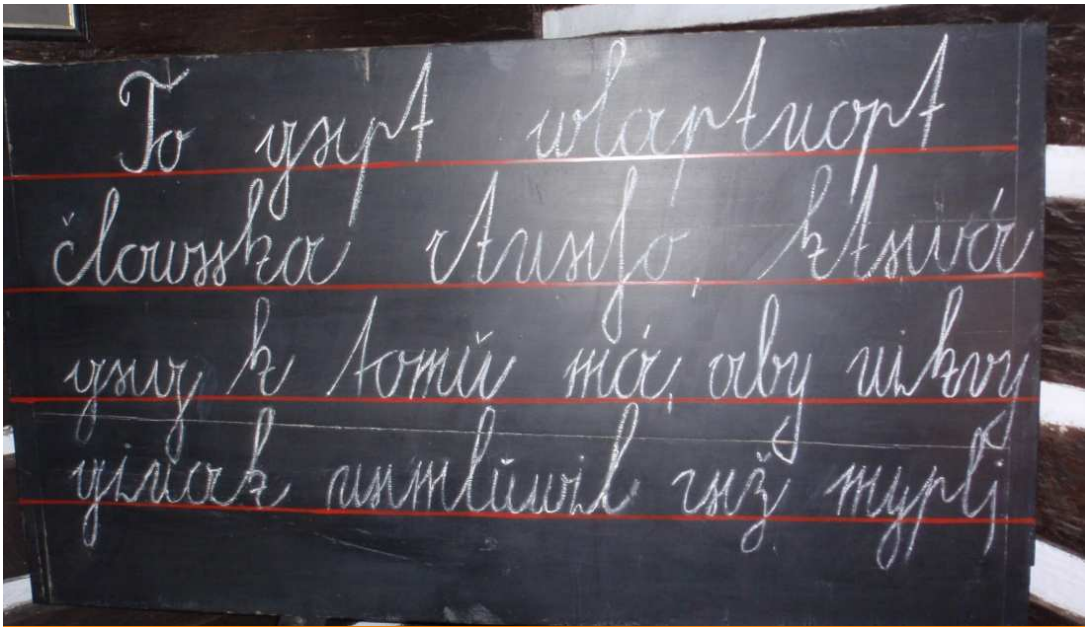 To gest wlastnost
čloweka ctneho, která
geg k tomu má, aby nikdy
ginak nemluwil než myslj